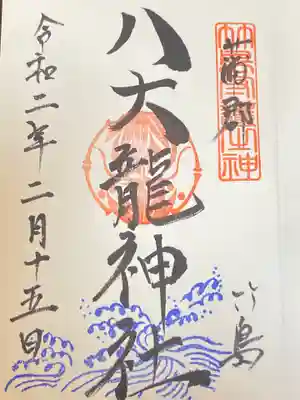 蒲郡
竹島
八大龍神社
令和二年二月十五日